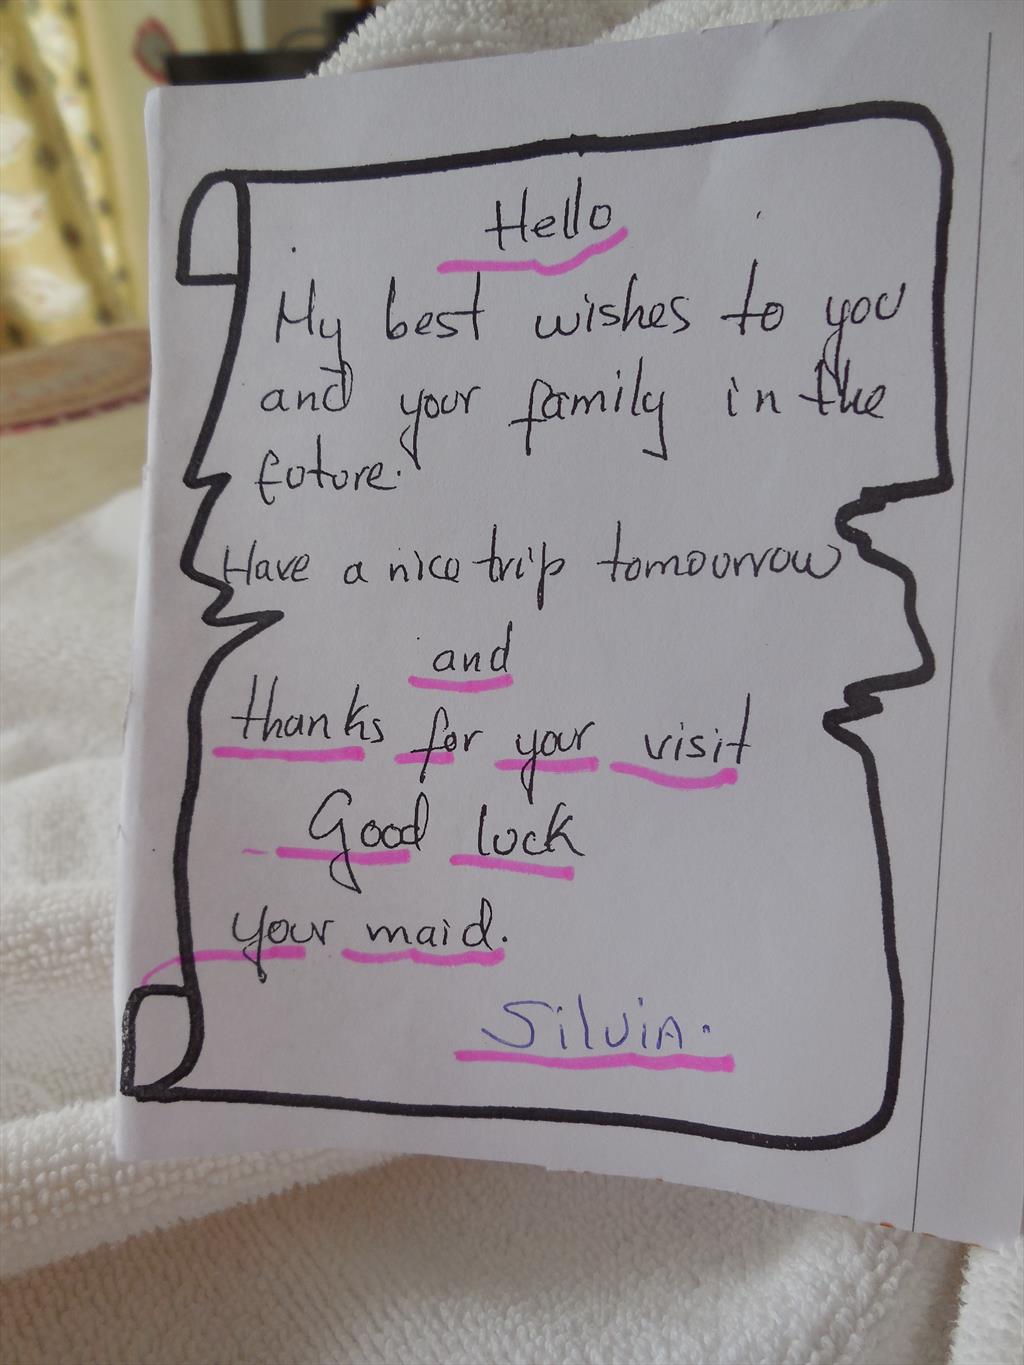 Hello
My best wishes to you
and your family in the
future.
Have a nice trip tomourrow
and
thanks for your visit
Good luck
your maid.
Silvia.